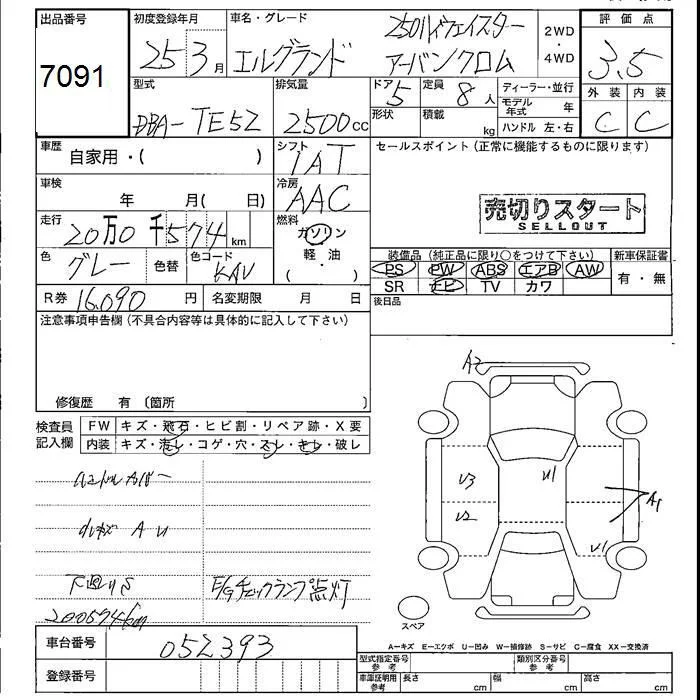 出品番号
7091
初度登録年月
25 3 月
車名・グレード
エルグランド
250ハイウェイスター
アーバンクロム
2WD
・
4WD
評価点
3.5
外装 内装
C C
型式
DBA-TE52
排気量
2500 cc
ドア
5
定員
8 人
形状
積載
kg
ディーラー・並行
モデル年式 年
ハンドル 左・右
車歴
自家用・( )
シフト
IAT
セールスポイント(正常に機能するものに限ります)
売切りスタート
SELLOUT
車検
年 月( 日)
冷房
AAC
走行
20万0千574 km
燃料
ガソリン
軽・油
( ・ )
色
グレー
色替
色コード
KAV
装備品(純正品に限り○をつけて下さい)
新車保証書
PS PW ABS エアB AW
SR ナビ TV カワ
有・無
R券 16,090 円
名変期限 月 日
後日品
注意事項申告欄(不具合内容等は具体的に記入して下さい)
修復歴 有〔箇所 〕
検査員
記入欄
FW キズ・飛石・ヒビ割・リペア跡・X要
内装 キズ・汚レ・コゲ・穴・スレ・キレ・破レ
下廻りS
E/gチェックランプ点灯
200574km
A2
U3
U2
U1
A1
U1
スペア
A-キズ E-エクボ U-凹み W-補修跡 S-サビ C-腐食 XX-交換済
車台番号
052393
登録番号
型式指定番号
参考
類別区分番号
参考
車庫証明用
参考
長さ cm
幅 cm
高さ cm